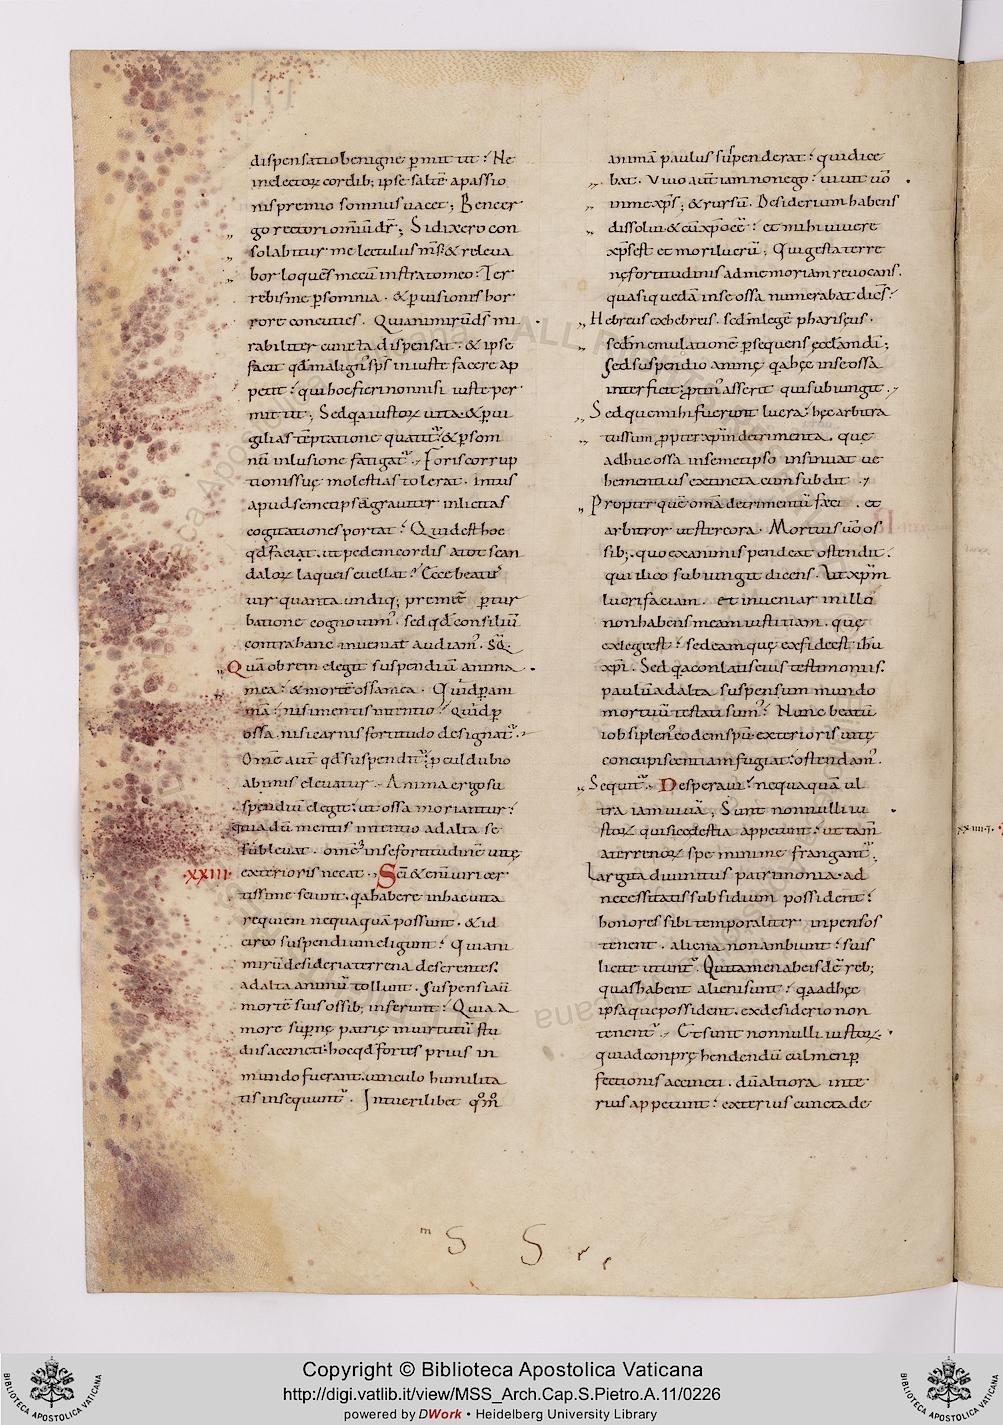 dispensatio benigne ꝑmittitur? Ne
in electoꝝ cordib; ipse saltē a passio
nis premio somnus uacet; Bene er
go rectori omīū dr̄; Si dixero con
solabitur me lectulus m̄s: & releua
bor loquēs mecū in stratomeo: Ter
rebis me ꝑ somnia. & ꝑ uisionis hor
rore concuties. Quia nimirū ds̄ mi
rabiliter cuncta dispensat. & ipse
facit qđ malign' sp̄s iniuste facere ap
petit: qui hoc fieri nonnisi iuste per
mittit; Sed qa iustoꝝ uita & ꝑ ui
gilias tēptatione quatitr̄ & ꝑ som
nū inlusione fatigatr̄. Foris corrup
tionis suę molestias tolerat. Intus
apud semetipsā grauiter inlicitas
cogitationes portat? Quid est hoc
qđ faciat. ut pedem cordis a tot scan
daloꝝ laqueis euellat? Ecce beate
uir quanta undiq; premeret ꝑtur
batione cognouim'. sed qđ consiliū
contra hanc inueniat audiam'. Seq̄.
Quā ob rem elegit suspendiū anima
mea: & mortē ossa mea. Quid ꝑ ani
mā: nisi mentis intentio? Quid ꝑ
ossa. nisi carnis fortitudo designatr̄.
Om̄e aut̄ qđ suspenditr̄ ꝓculdubio
ab imis eleuatur. Anima ergo su
spendiū elegit: ut ossa moriantur:
quia dū mentis intentio ad alta se
subleuat. omē in se fortitudinē uitę
·XXIII· exterioris necat. Scī & enī uiri cer
tissime sciunt. qa habere in hac uita
requiem nequaquā possunt. & id
circo suspendium eligunt: Quia ni
mirū desideria terrena deserentes:
ad alta animū tollunt. Suspensi aū
mortē suis ossib; inferunt: Quia a
more supernę patrię in uirtutū stu
diis accincti: hoc qđ fortes prius in
mundo fuerant. uinculo humilita
tis insequuntr̄. Intueri libet qm̄o
animā paulus suspenderat: qui dice
bat. Viuo aut̄ iam non ego: uiuit uō
in me xp̄s; & rursū. Desiderium habens
dissolui & cū xp̄o eē: et mihi uiuere
xp̄s est et mori lucrū; Qui gesta terre
nę fortitudinis ad memoriam reuocans.
quasi quedā in se ossa numerabat dices:
Hebreus ex hebreis. sedm̄ legē phariseus.
sedm̄ emulationē ꝑsequens ęcclam di;
Sed suspendio animę qa hęc in se ossa
interficit: ꝓtin' asserit qui subiungit.
Sed que mihi fuerunt lucra: hęc arbitra
tus sum ꝓpter xp̄m detrimenta. que
adhuc ossa in semetipso insinuat ue
hementius extincta cum subdit.
Propter quē om̄a detrimentū feci. et
arbitror ut stercora. Mortuis uō os
sib;. quo exanimis pendeat ostendit.
qui ilico subiungit dicens. Ut xp̄m
lucrifaciam. et inueniar in illo
non habens meam iustitiam. quę
ex lege est: sed eam quę ex fide est ihū
xp̄i. Sed qa conlatis eius testimoniis:
paulū ad alta suspensum mundo
mortuū testati sum': Nunc beatū
iob si plen' eodem sp̄u exterioris uitę
concupiscentiam fugiat: ostendam'.
Sequitr̄. Desperaui: nequaquā ul
tra iam uiuā; Sunt nonnulli iu
stoꝝ qui sic cęlestia appetunt: ut tam̄
a terrenoꝝ spe minime frangantr̄.
Largita diuinitus patrimonia ad
necessitatis subsidium possident:
honores sibi temporaliter inpensos
tenent. aliena non ambiunt: suis
licite utuntr̄. Qui tamen ab eisdē reb;
quas habent alieni sunt: qa ad hęc
ipsa que possident. ex desiderio non
tenentr̄. Et sunt nonnulli iustoꝝ.
qui ad conprehendendū culmen ꝑ
fectionis accincti. dū altiora inte
rius appetunt: exterius cuncta de
Copyright © Biblioteca Apostolica Vaticana
http://digi.vatlib.it/view/MSS_Arch.Cap.S.Pietro.A.11/0226
powered by DWork • Heidelberg University Library
BIBLIOTECA APOSTOLICA VATICANA
BIBLIOTECA APOSTOLICA VATICANA